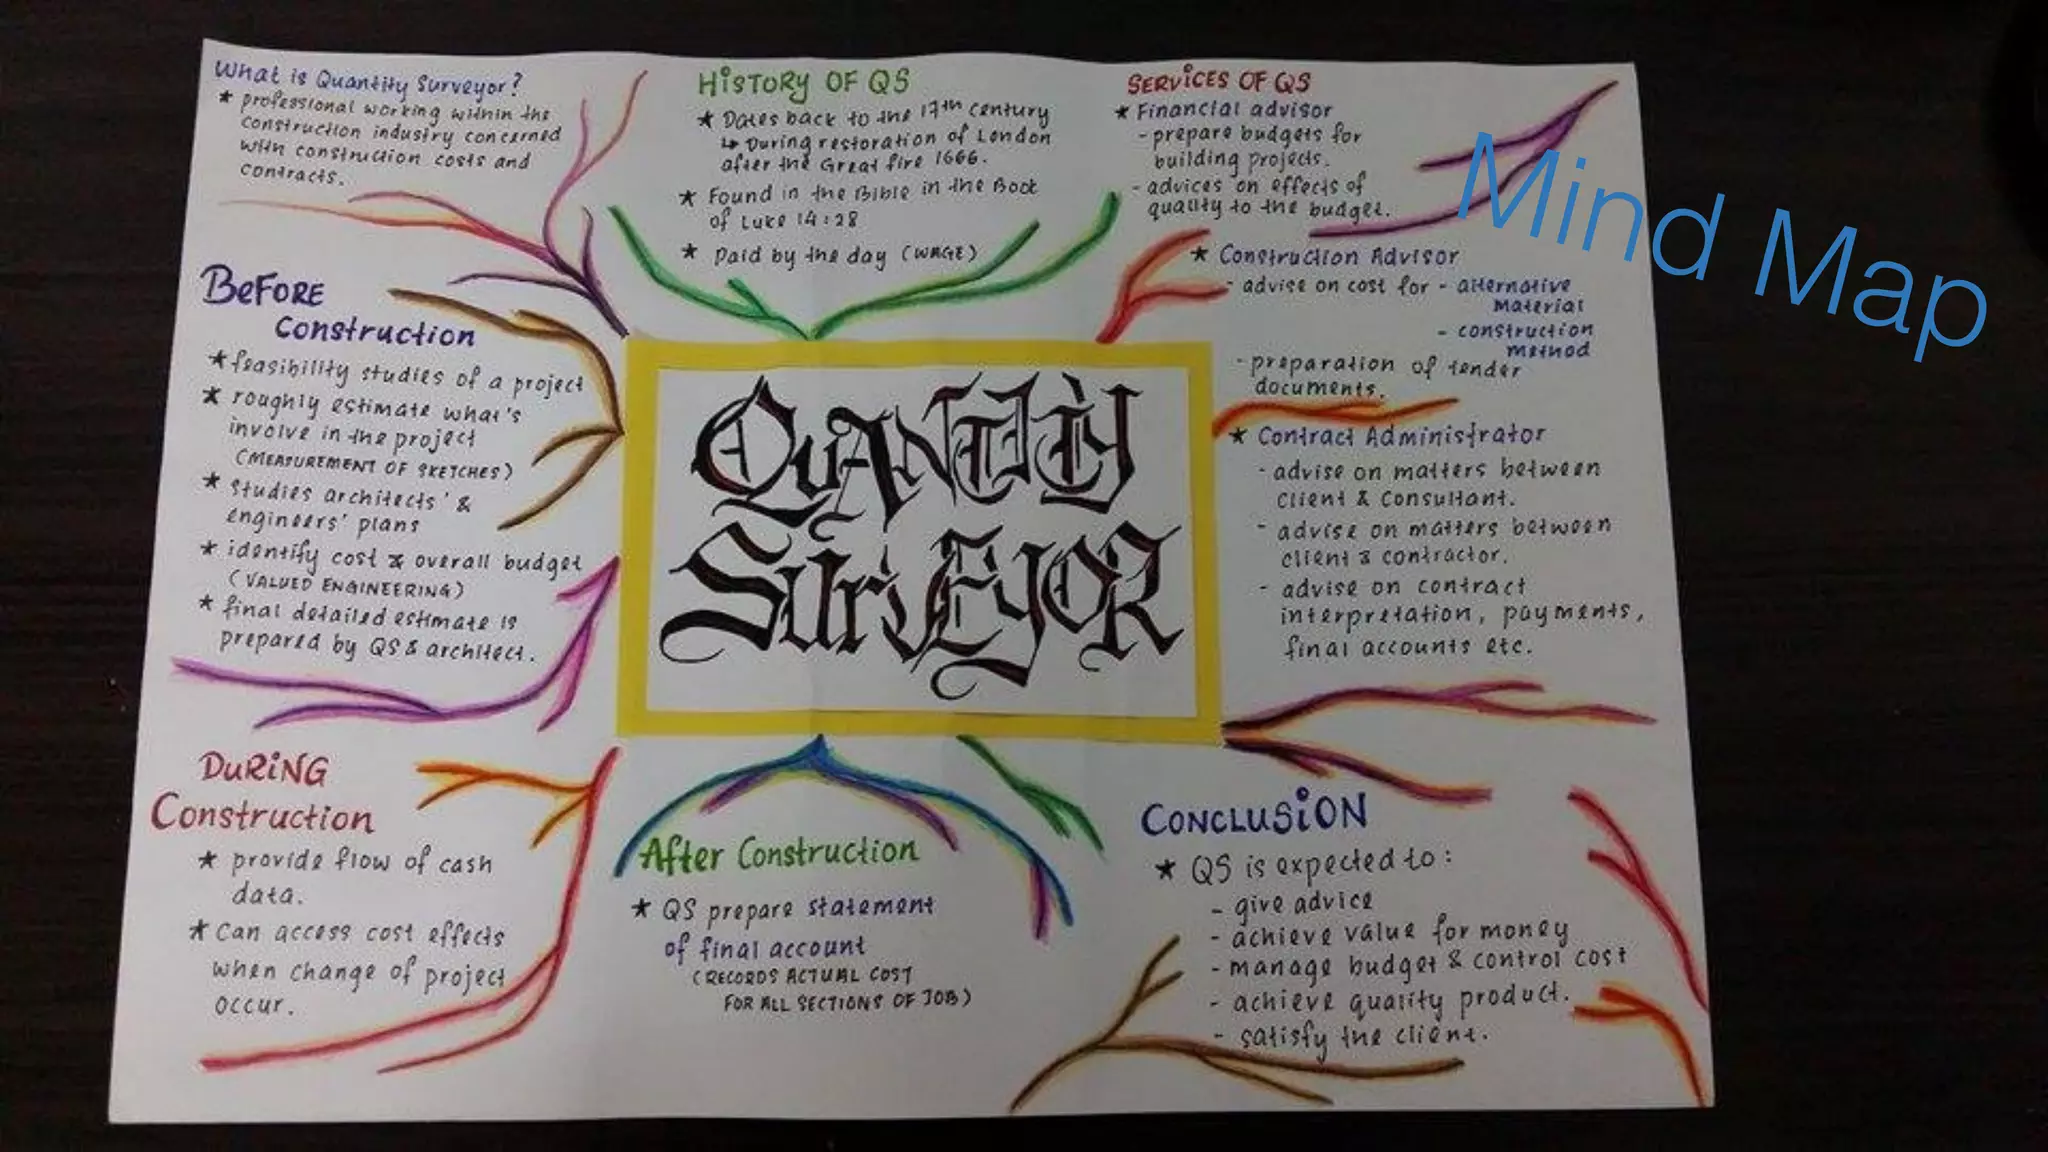 What is Quantity Surveyor?
* professional working within the
construction industry concerned
with construction costs and
contracts.
BeFORE
Construction
* feasibility studies of a project
* roughly estimate what's
involve in the project
(MEASUREMENT OF SKETCHES)
* studies architects' &
engineers' plans
* identify cost & overall budget
(VALUED ENGINEERING)
* final detailed estimate is
prepared by QS & architect.
DuRiNG
Construction
* provide flow of cash
data.
* Can access cost effects
when change of project
occur.
HiSTORy OF QS
* Dates back to the 17th century
↳ During restoration of London
after the Great fire 1666.
* Found in the Bible in the Book
of Luke 14:28
* Paid by the day (WAGE)
QuANTiTy
SurvEyOR
After Construction
* QS prepare statement
of final account
(RECORDS ACTUAL COST
FOR ALL SECTIONS OF JOB)
SERViCES OF QS
* Financial advisor
- prepare budgets for
building projects.
- advices on effects of
quality to the budget.
* Construction Advisor
- advise on cost for - alternative
material
- construction
method
- preparation of tender
documents.
* Contract Administrator
- advise on matters between
client & Consultant.
- advise on matters between
client & contractor.
- advise on contract
interpretation, payments,
final accounts etc.
CONCLUSiON
* QS is expected to:
- give advice
- achieve value for money
- manage budget & control cost
- achieve quality product.
- satisfy the client.
Mind Map